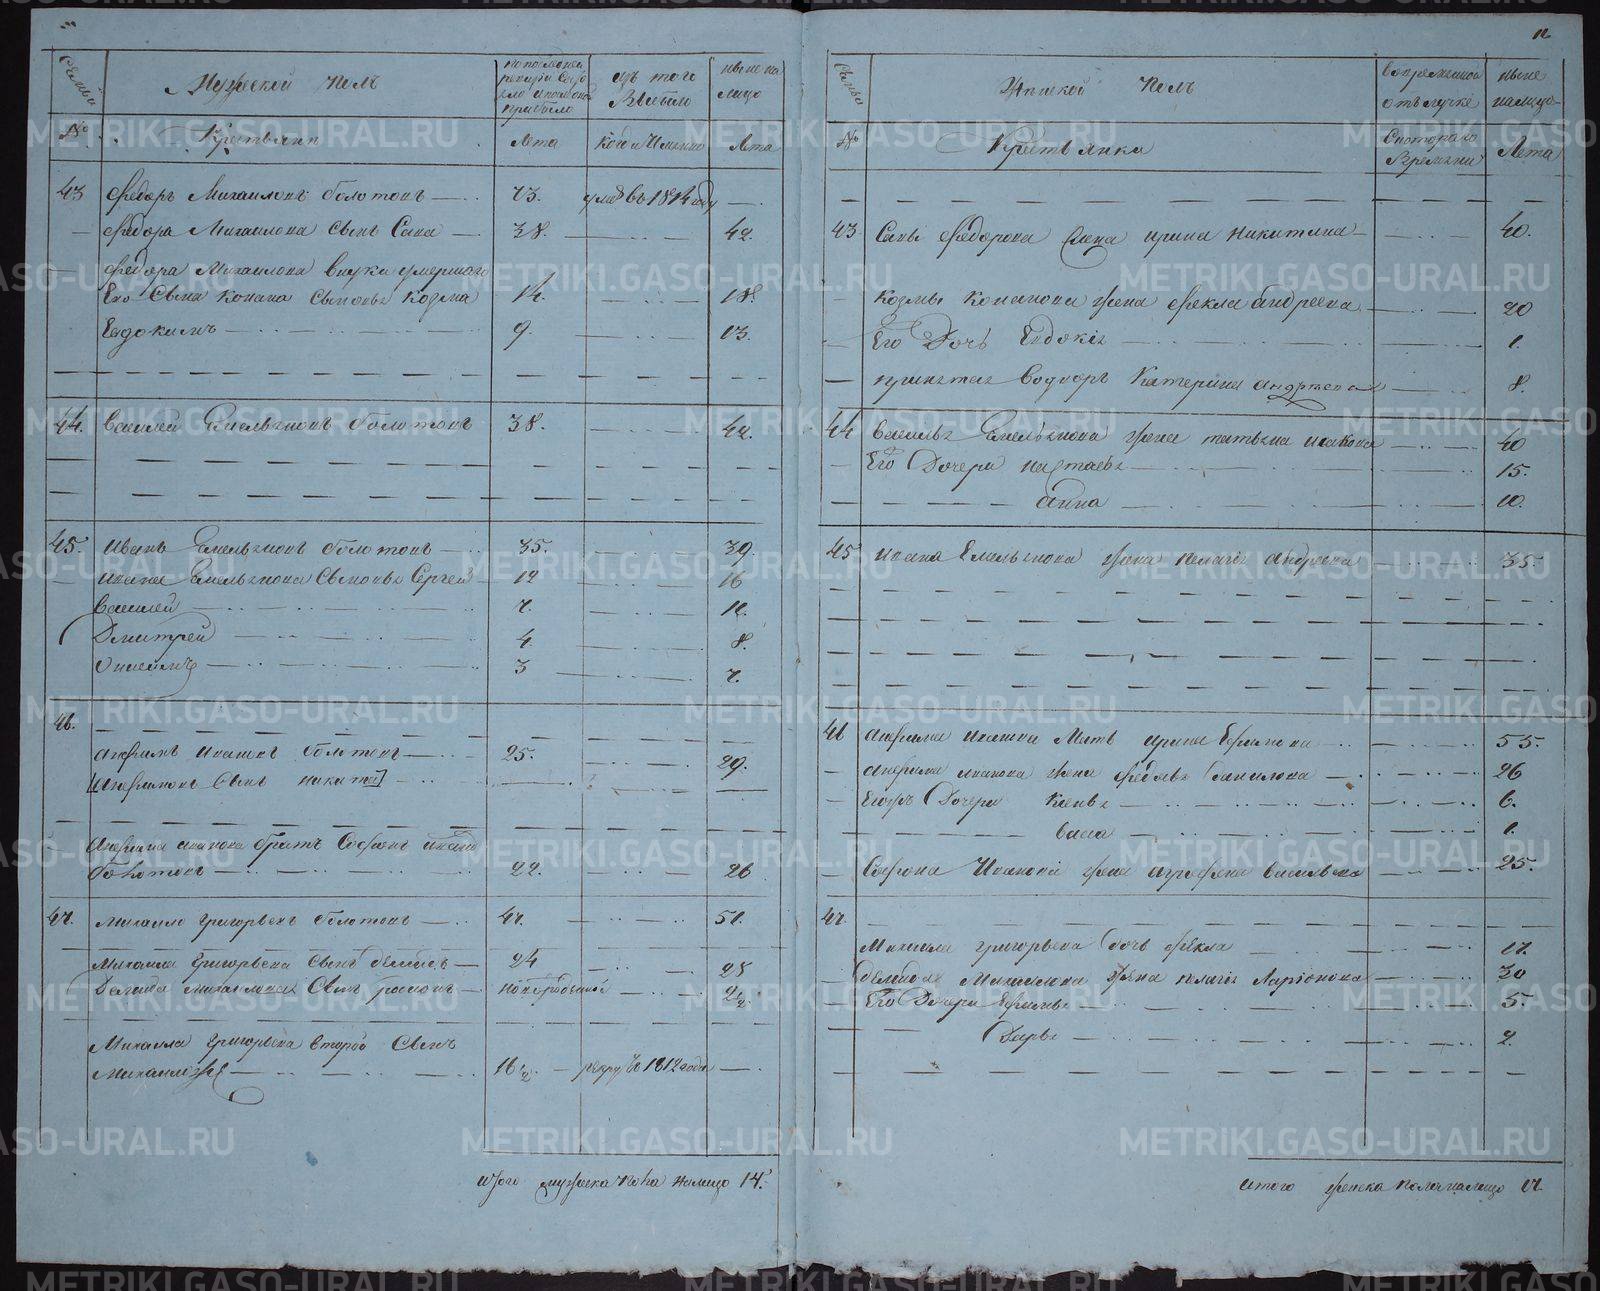 Семьи
Мужеской Полъ
по последней ревизіи состояло и после оной прибыло
изъ того выбыло
ныне на лицо
№
Крестьяне
Лета
Когда именно
Лета
43 Федоръ Михаиловъ болотовъ 73. умре въ 1814 году
Федора Михаилова сынъ Сава 38. 42.
Федора Михаилова внука умершаго
Его сына Конана сыновья Козма 14. 18.
Евдокимъ 9. 13.
44. Василей Емельяновъ болотовъ 38. 42.
45. Иванъ Емельяновъ болотовъ 35. 39.
Ивана Емельянова сыновья Сергей 12 16
Василей 7. 11.
Дмитрей 4. 8.
Онисимъ 3 7.
46.
Анфимъ Ивановъ болотовъ 25. 29.
[Анфимовъ сынъ Никита]
Анфима Иванова братъ Софонъ Ивановъ
болотовъ 22. 26
47. Михаило Григорьевъ болотовъ 47. 51.
Михаила Григорьева сынъ Демидъ 24 28
Демида Михаилова сынъ новорожденной 2 1/2
Михаила Григорьева второй сынъ
Михаило же 16 1/2 рекру въ 1812 годе
Итого мужеска пола налицо 14.
12
Семьи
Женской Полъ
во временной отлучке
ныне налицо
№
Крестьянки
Съ котораго времени
Лета
43 Савы Федорова жена Ирина Никитина 40.
Козмы Конанова жена Фекла Андреева 20
Его дочь Евдокія 1.
принятая водворъ Катерина Андреева 8.
44 Василья Емельянова жена Татьяна Исакова 40
Его дочери Настасья 15.
Анна 10.
45 Ивана Емельянова жена Пелагея Андреева 35.
46 Анфима Иванова мать Ирина Ефимова 55.
Анфима Иванова жена Федосья Данилова 26
Егожъ дочери Ксенья 6.
Васса 1.
Софона Иванова жена Аграфена Васильева 25.
47.
Михаила Григорьева дочь Фекла 17.
Демида Михаилова жена Пелагея Ларіонова 30
Его дочери Ефимья 5.
Дарья 2.
Итого женска пола налицо 17.
METRIKI.GASO-URAL.RU